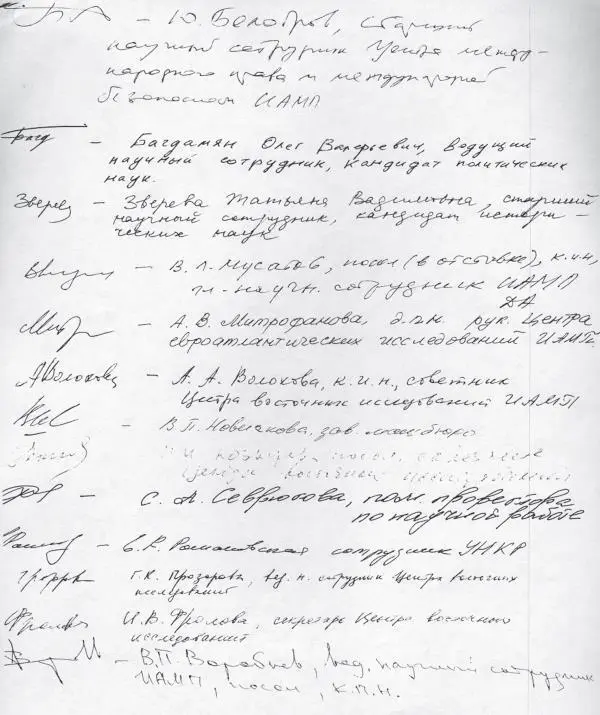 – Ю. Белобров, старший
научный сотрудник Центра между-
народного права и международной
безопасности ИАМП
Багд – Багдамян Олег Валерьевич, ведущий
научный сотрудник, кандидат политических
наук.
Зверев – Зверева Татьяна Вадимовна, старший
научный сотрудник, кандидат истори-
ческих наук
– В. Л. Мусатов, посол (в отставке), к.и.н,
гл. научн. сотрудник ИАМП
ДА
Митр – А. В. Митрофанова, д.п.н. рук. Центра
евроатлантических исследований ИАМП.
АВолохова – А. А. Волохова, к.и.н., советник
Центра восточных исследований ИАМП
– В. П. Новикова, зав. машбюро
посол,
Центра
– С. А. Севрюгова, пом. проректора
по научной работе
– Е. К. Ромашевская сотрудник УНКР
– Г. К. Прозорова, вед. н. сотрудник Центра восточных
исследований
Фролова – И. В. Фролова, секретарь Центра восточного
исследований
– В. П. Воробьев, вед. научный сотрудник
ИАМП, посол, к.п.н.